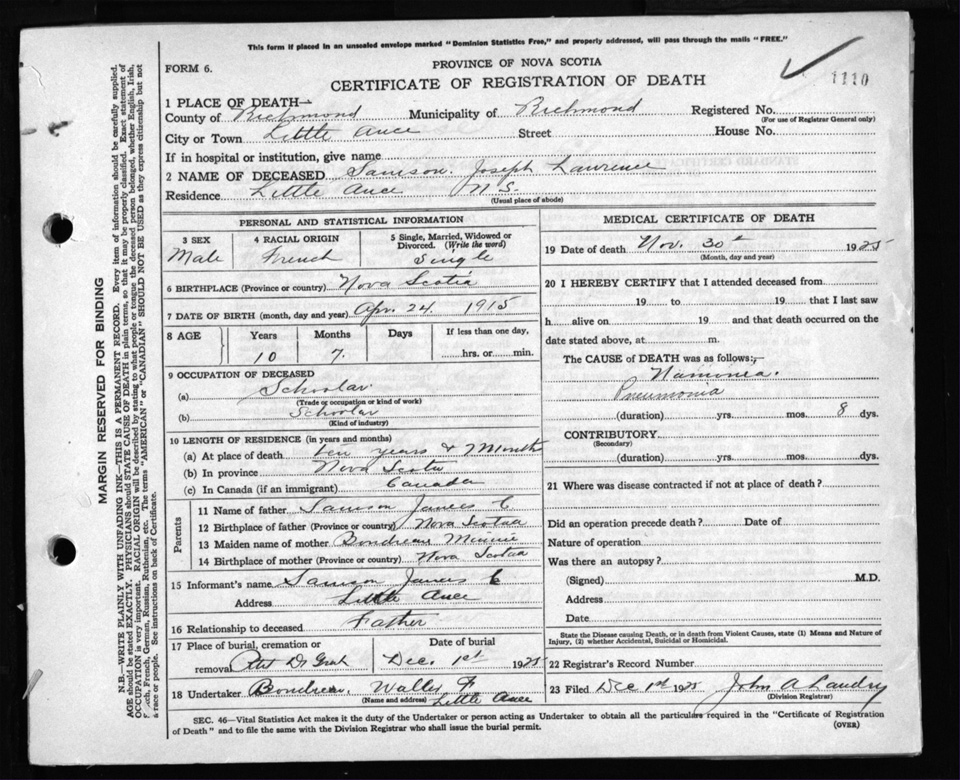 This form if placed in an unsealed envelope marked "Dominion Statistics Free," and properly addressed, will pass through the mails "FREE."
FORM 6.
PROVINCE OF NOVA SCOTIA
CERTIFICATE OF REGISTRATION OF DEATH
1110
1 PLACE OF DEATH—
County of Richmond Municipality of Richmond Registered No.
(For use of Registrar General only)
City or Town Little Ance Street House No.
If in hospital or institution, give name
2 NAME OF DECEASED Samson. Joseph Lawrence
Residence Little Ance N.S.
(Usual place of abode)
PERSONAL AND STATISTICAL INFORMATION
3 SEX 4 RACIAL ORIGIN 5 Single, Married, Widowed or Divorced. (Write the word)
Male French Single
6 BIRTHPLACE (Province or country) Nova Scotia
7 DATE OF BIRTH (month, day and year) Apr. 24 1915
8 AGE Years Months Days If less than one day,
10 7. hrs. or min.
9 OCCUPATION OF DECEASED
(a) Schoolar.
(Trade or occupation or kind of work)
(b) Schoolar
(Kind of industry)
10 LENGTH OF RESIDENCE (in years and months)
(a) At place of death ten years & Month
(b) In province Nova Scotia
(c) In Canada (if an immigrant) Canada
Parents
11 Name of father Samson James C
12 Birthplace of father (Province or country) Nova Scotaa
13 Maiden name of mother Boudreau Minnie
14 Birthplace of mother (Province or country) Nova Scotaa
15 Informant's name Samson James C
Address Little Ance
16 Relationship to deceased Father
17 Place of burial, cremation or removal Petit De Grat
Date of burial Dec. 1st 1925
18 Undertaker Boudreau, Walter F
(Name and address) Little Ance
MEDICAL CERTIFICATE OF DEATH
19 Date of death Nov. 30t 1925
(Month, day and year)
20 I HEREBY CERTIFY that I attended deceased from
19 to 19 that I last saw
h alive on 19 and that death occurred on the
date stated above, at m.
The CAUSE of DEATH was as follows;—
Namonea.
Pneumonia
(duration) yrs. mos. 8 dys.
CONTRIBUTORY
(Secondary)
(duration) yrs. mos. dys.
21 Where was disease contracted if not at place of death?
Did an operation precede death? Date of
Nature of operation
Was there an autopsy?
(Signed) M.D.
Address
Date
State the Disease causing Death, or in death from Violent Causes, state (1) Means and Nature of
Injury, (2) whether Accidental, Suicidal or Homicidal.
22 Registrar's Record Number
23 Filed Dec 1st 1925 John A Landry
(Division Registrar)
SEC. 46—Vital Statistics Act makes it the duty of the Undertaker or person acting as Undertaker to obtain all the particulars required in the "Certificate of Registration
of Death" and to file the same with the Division Registrar who shall issue the burial permit.
(OVER)
MARGIN RESERVED FOR BINDING
N.B.—WRITE PLAINLY WITH UNFADING INK—THIS IS A PERMANENT RECORD. Every item of information should be carefully supplied.
AGE should be stated EXACTLY. PHYSICIANS should STATE CAUSE OF DEATH in plain terms, so that it may be properly classified. Exact statement of
OCCUPATION is very important. RACIAL ORIGIN will be described by stating to what people or tongue the deceased person belonged, whether English, Irish,
French, German, Russian, Ruthenian, etc. The terms "AMERICAN" or "CANADIAN" SHOULD NOT BE USED as they express citizenship but not
a race or people. See instructions on back of Certificate.